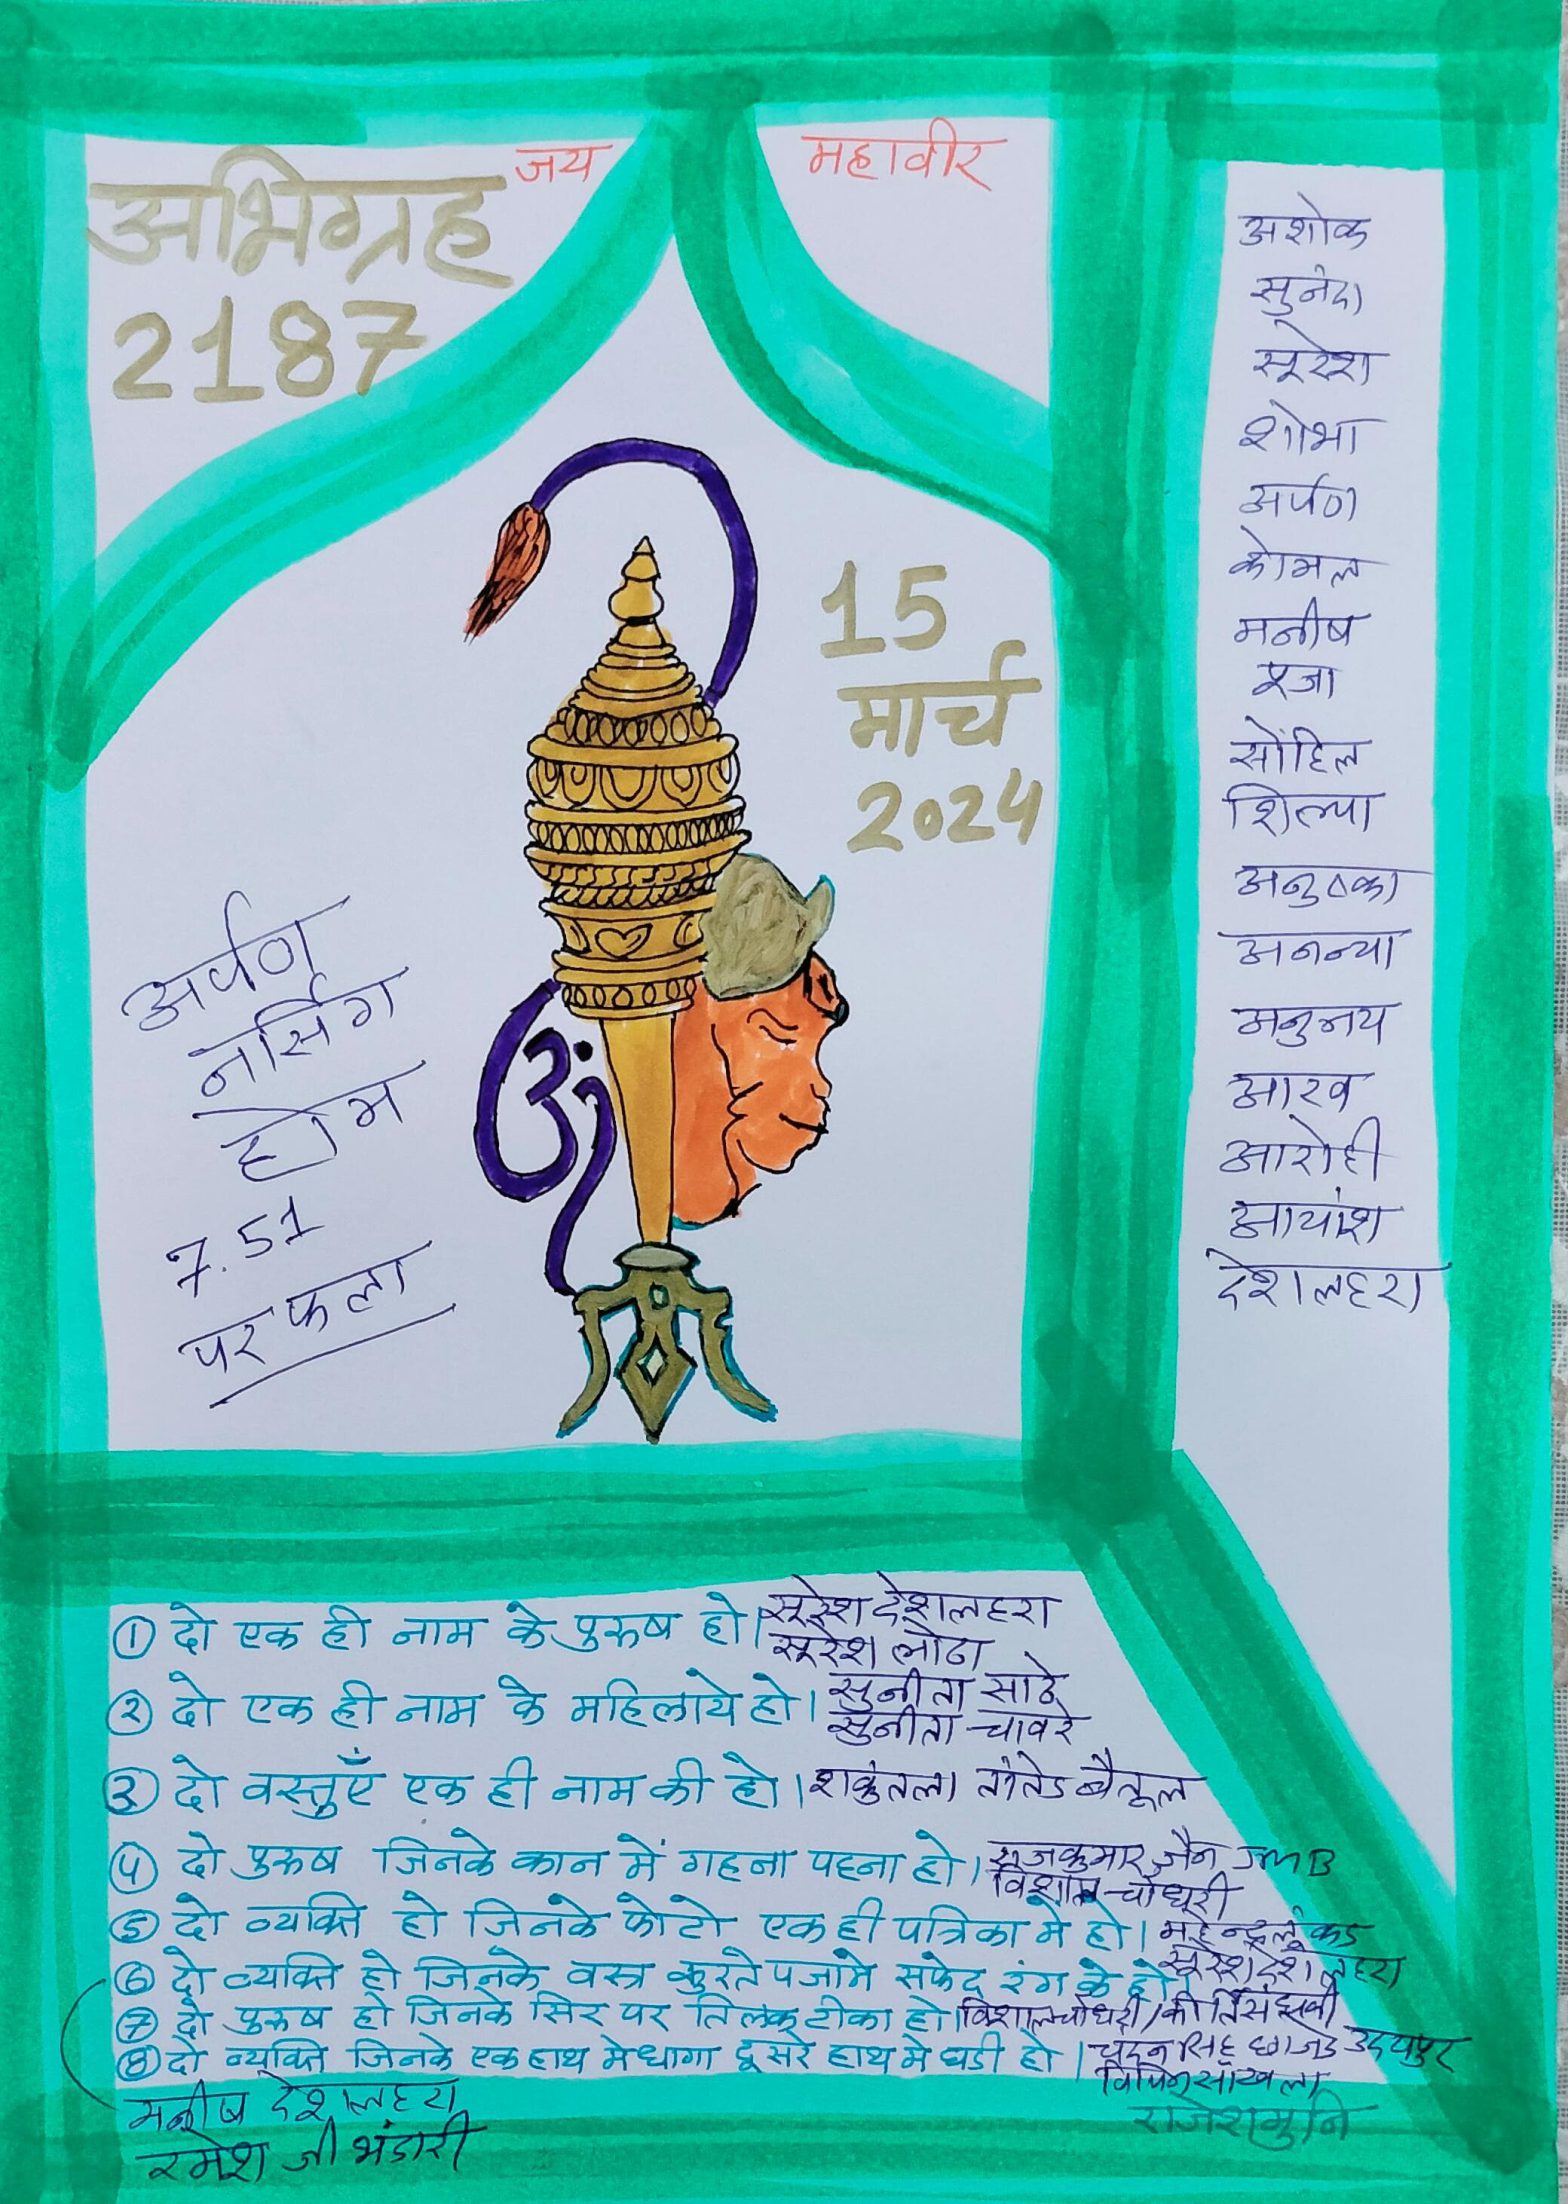 जय महावीर
अभिग्रह
2187
15
मार्च
2024
अर्पण
नर्सिंग
होम
7.51
पर फला
अशोक
सुनंदा
सुरेश
शोभा
अर्पण
कोमल
मनीष
सोहिल
शिल्पा
अनुष्का
अनन्या
आरव
आरोही
आयांश
देशलहरा
① दो एक ही नाम के पुरुष हो। सुरेश देशलहरा
सुरेश लोढा
② दो एक ही नाम के महिलाये हो। सुनीता साठे
सुनीता चावरे
③ दो वस्तुएँ एक ही नाम की हो। शकुंतला तातेड बैतूल
④ दो पुरुष जिनके कान में गहना पहना हो। राजकुमार जैन JMB
विशाल चौधरी
⑤ दो व्यक्ति हो जिनके फोटो एक ही पत्रिका मे हो। महेन्द्र लुंकड
सुरेश देशलहरा
⑥ दो व्यक्ति हो जिनके वस्त्र कुरते पजामे सफेद रंग के हो
⑦ दो पुरुष हो जिनके सिर पर तिलक टीका हो। विशाल चौधरी /
⑧ दो व्यक्ति जिनके एक हाथ मे धागा दूसरे हाथ मे घडी हो। उदयपुर
विपिन सांखला
मनीष देशलहरा
रमेश जी भंडारी
राजेशमुनि